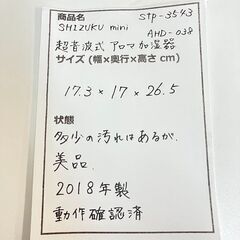 商品名
stp-3543
SHIZUKU mini
AHD-038
超音波式アロマ加湿器
サイズ (幅×奥行×高さ cm)
17.3 × 17 × 26.5
状態
多少の汚れはあるが、
美品
2018年製
動作確認済